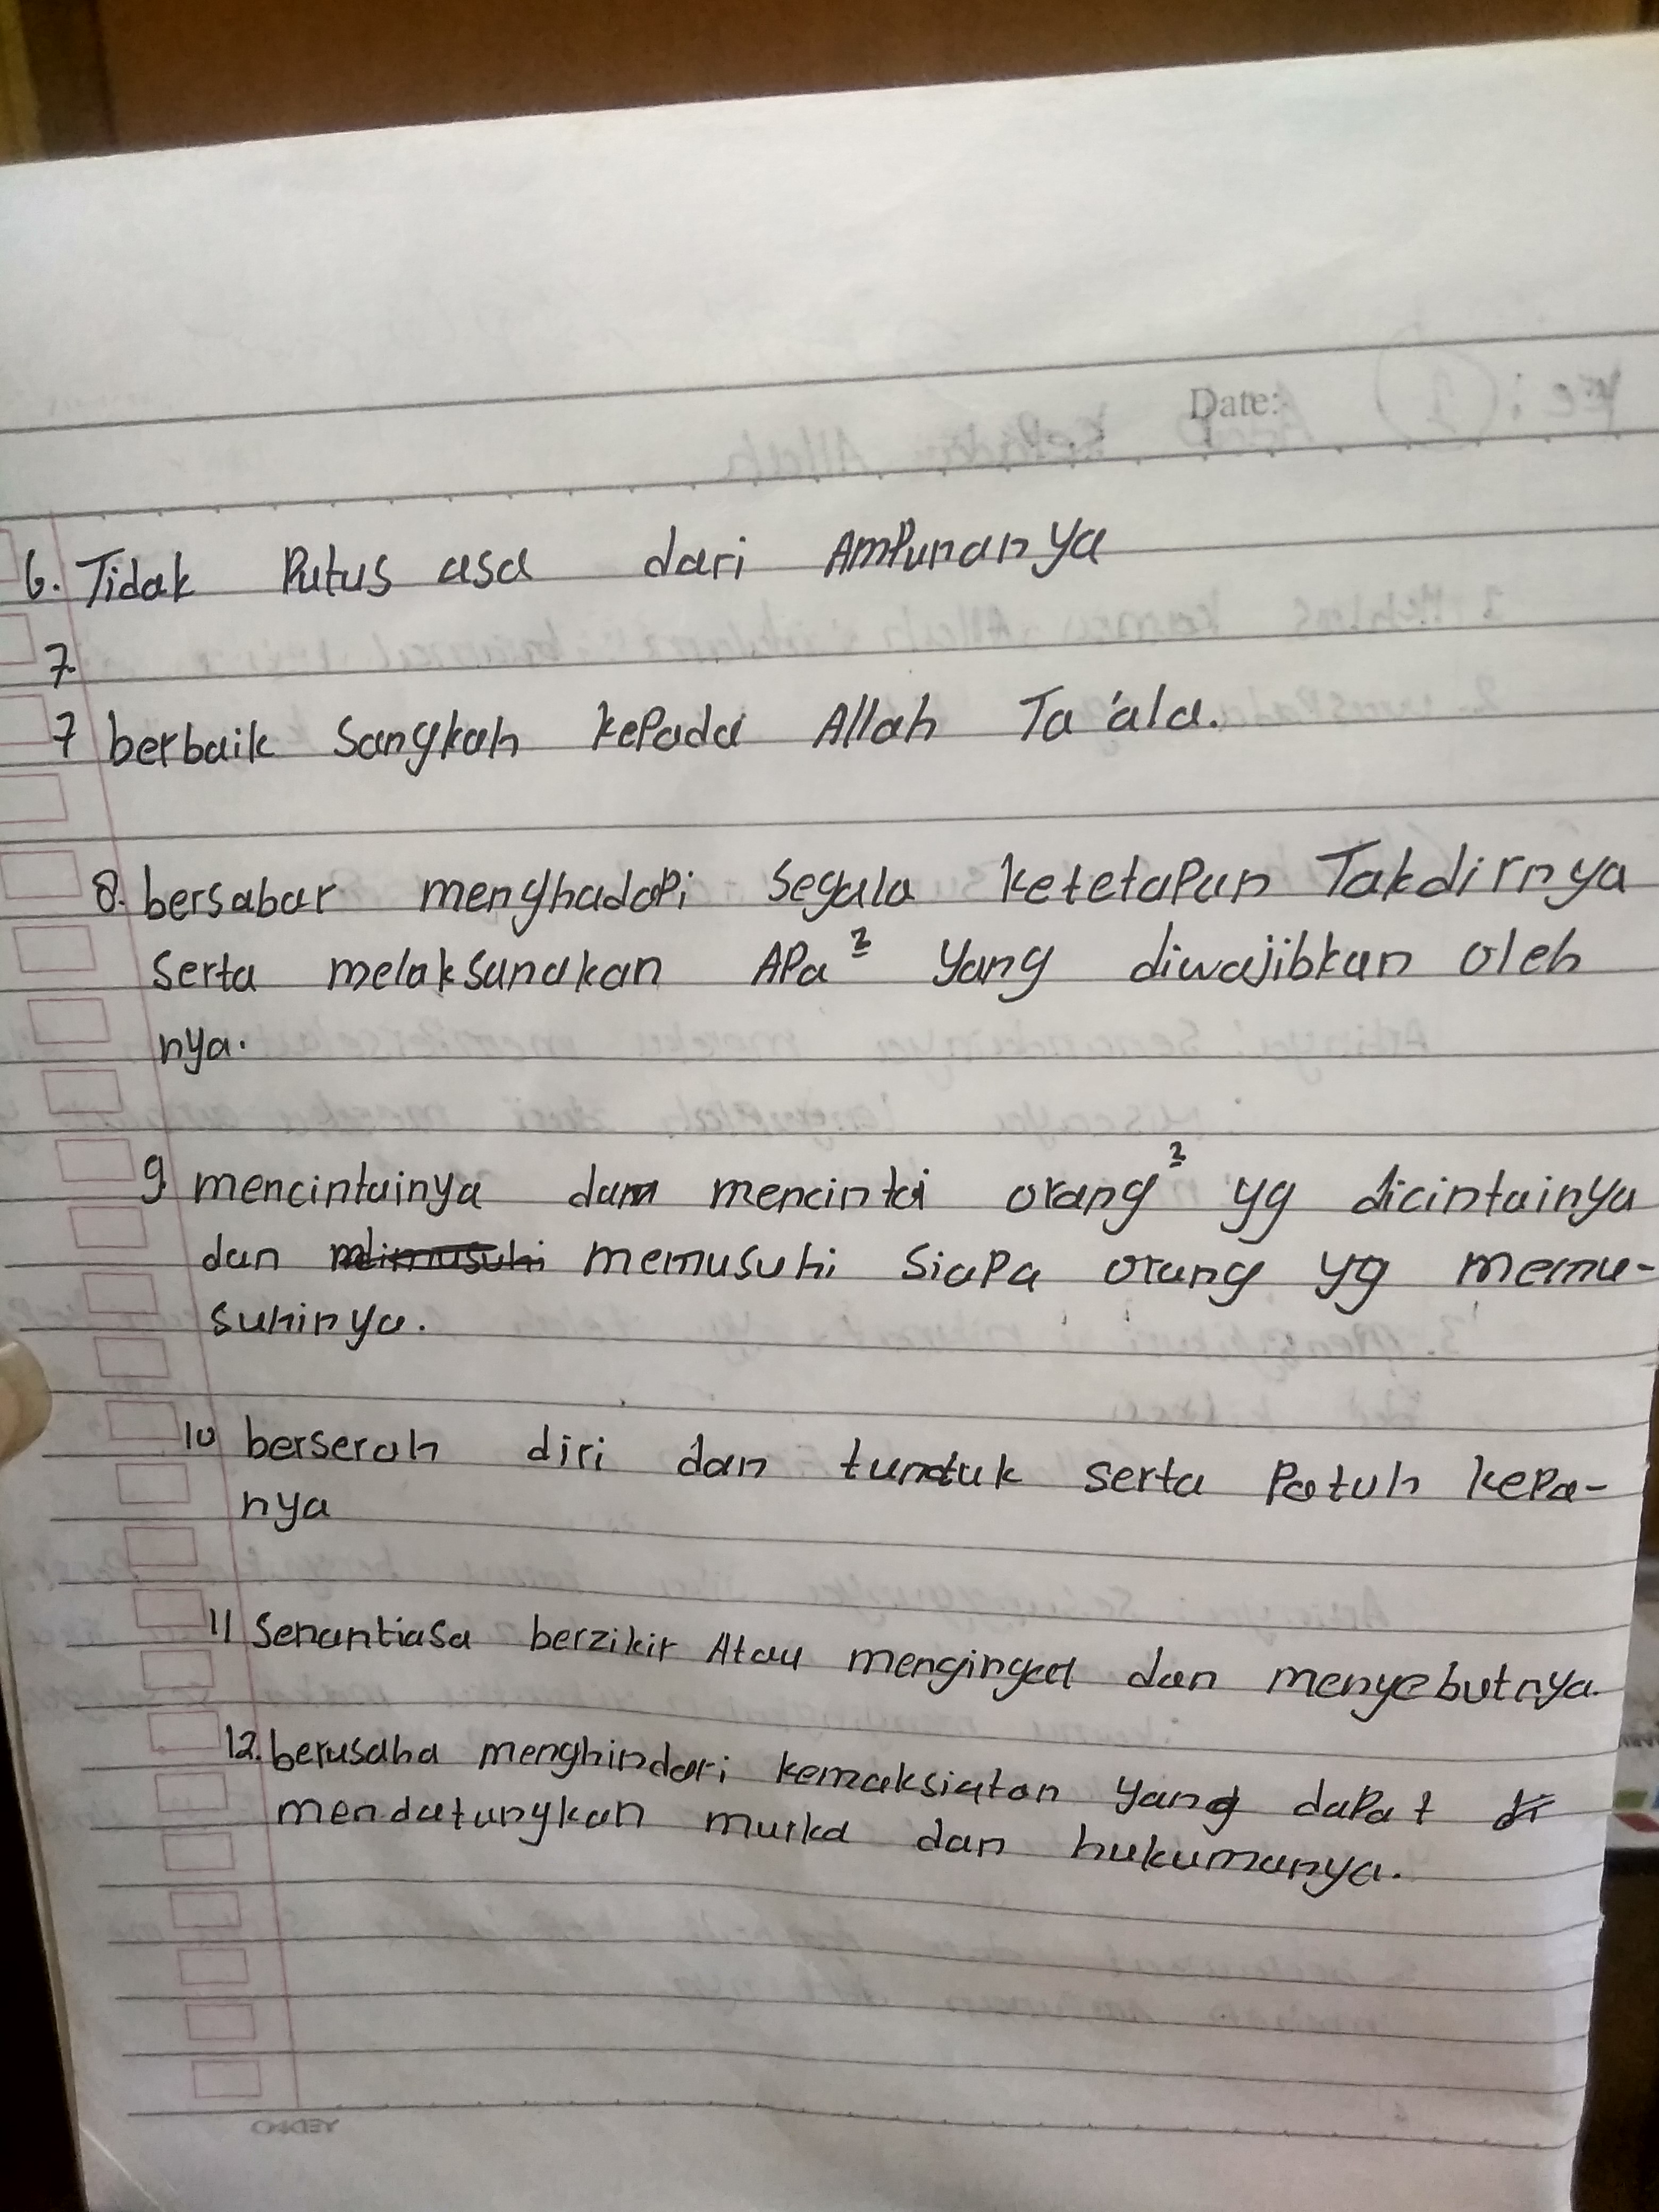 Date:
6. Tidak Putus asa dari AmPunanya
7
7 berbaik Sangkah kePada Allah Ta'ala.
8. bersabar menghadaPi Segala ketetaPan Takdirnya
Serta melaksanakan APa² Yang diwajibkan oleh
nya.
9 mencintainya dan mencintai orang² yg dicintainya
dan memusuhi SiaPa orang yg memu-
suhinya.
10 berserah diri dan tunduk serta Patuh kePa-
nya
11 Senantiasa berzikir Atau mengingat dan menyebutnya.
12. berusaha menghindari kemaksiatan Yang daPat
mendatangkan murka dan hukumanya.